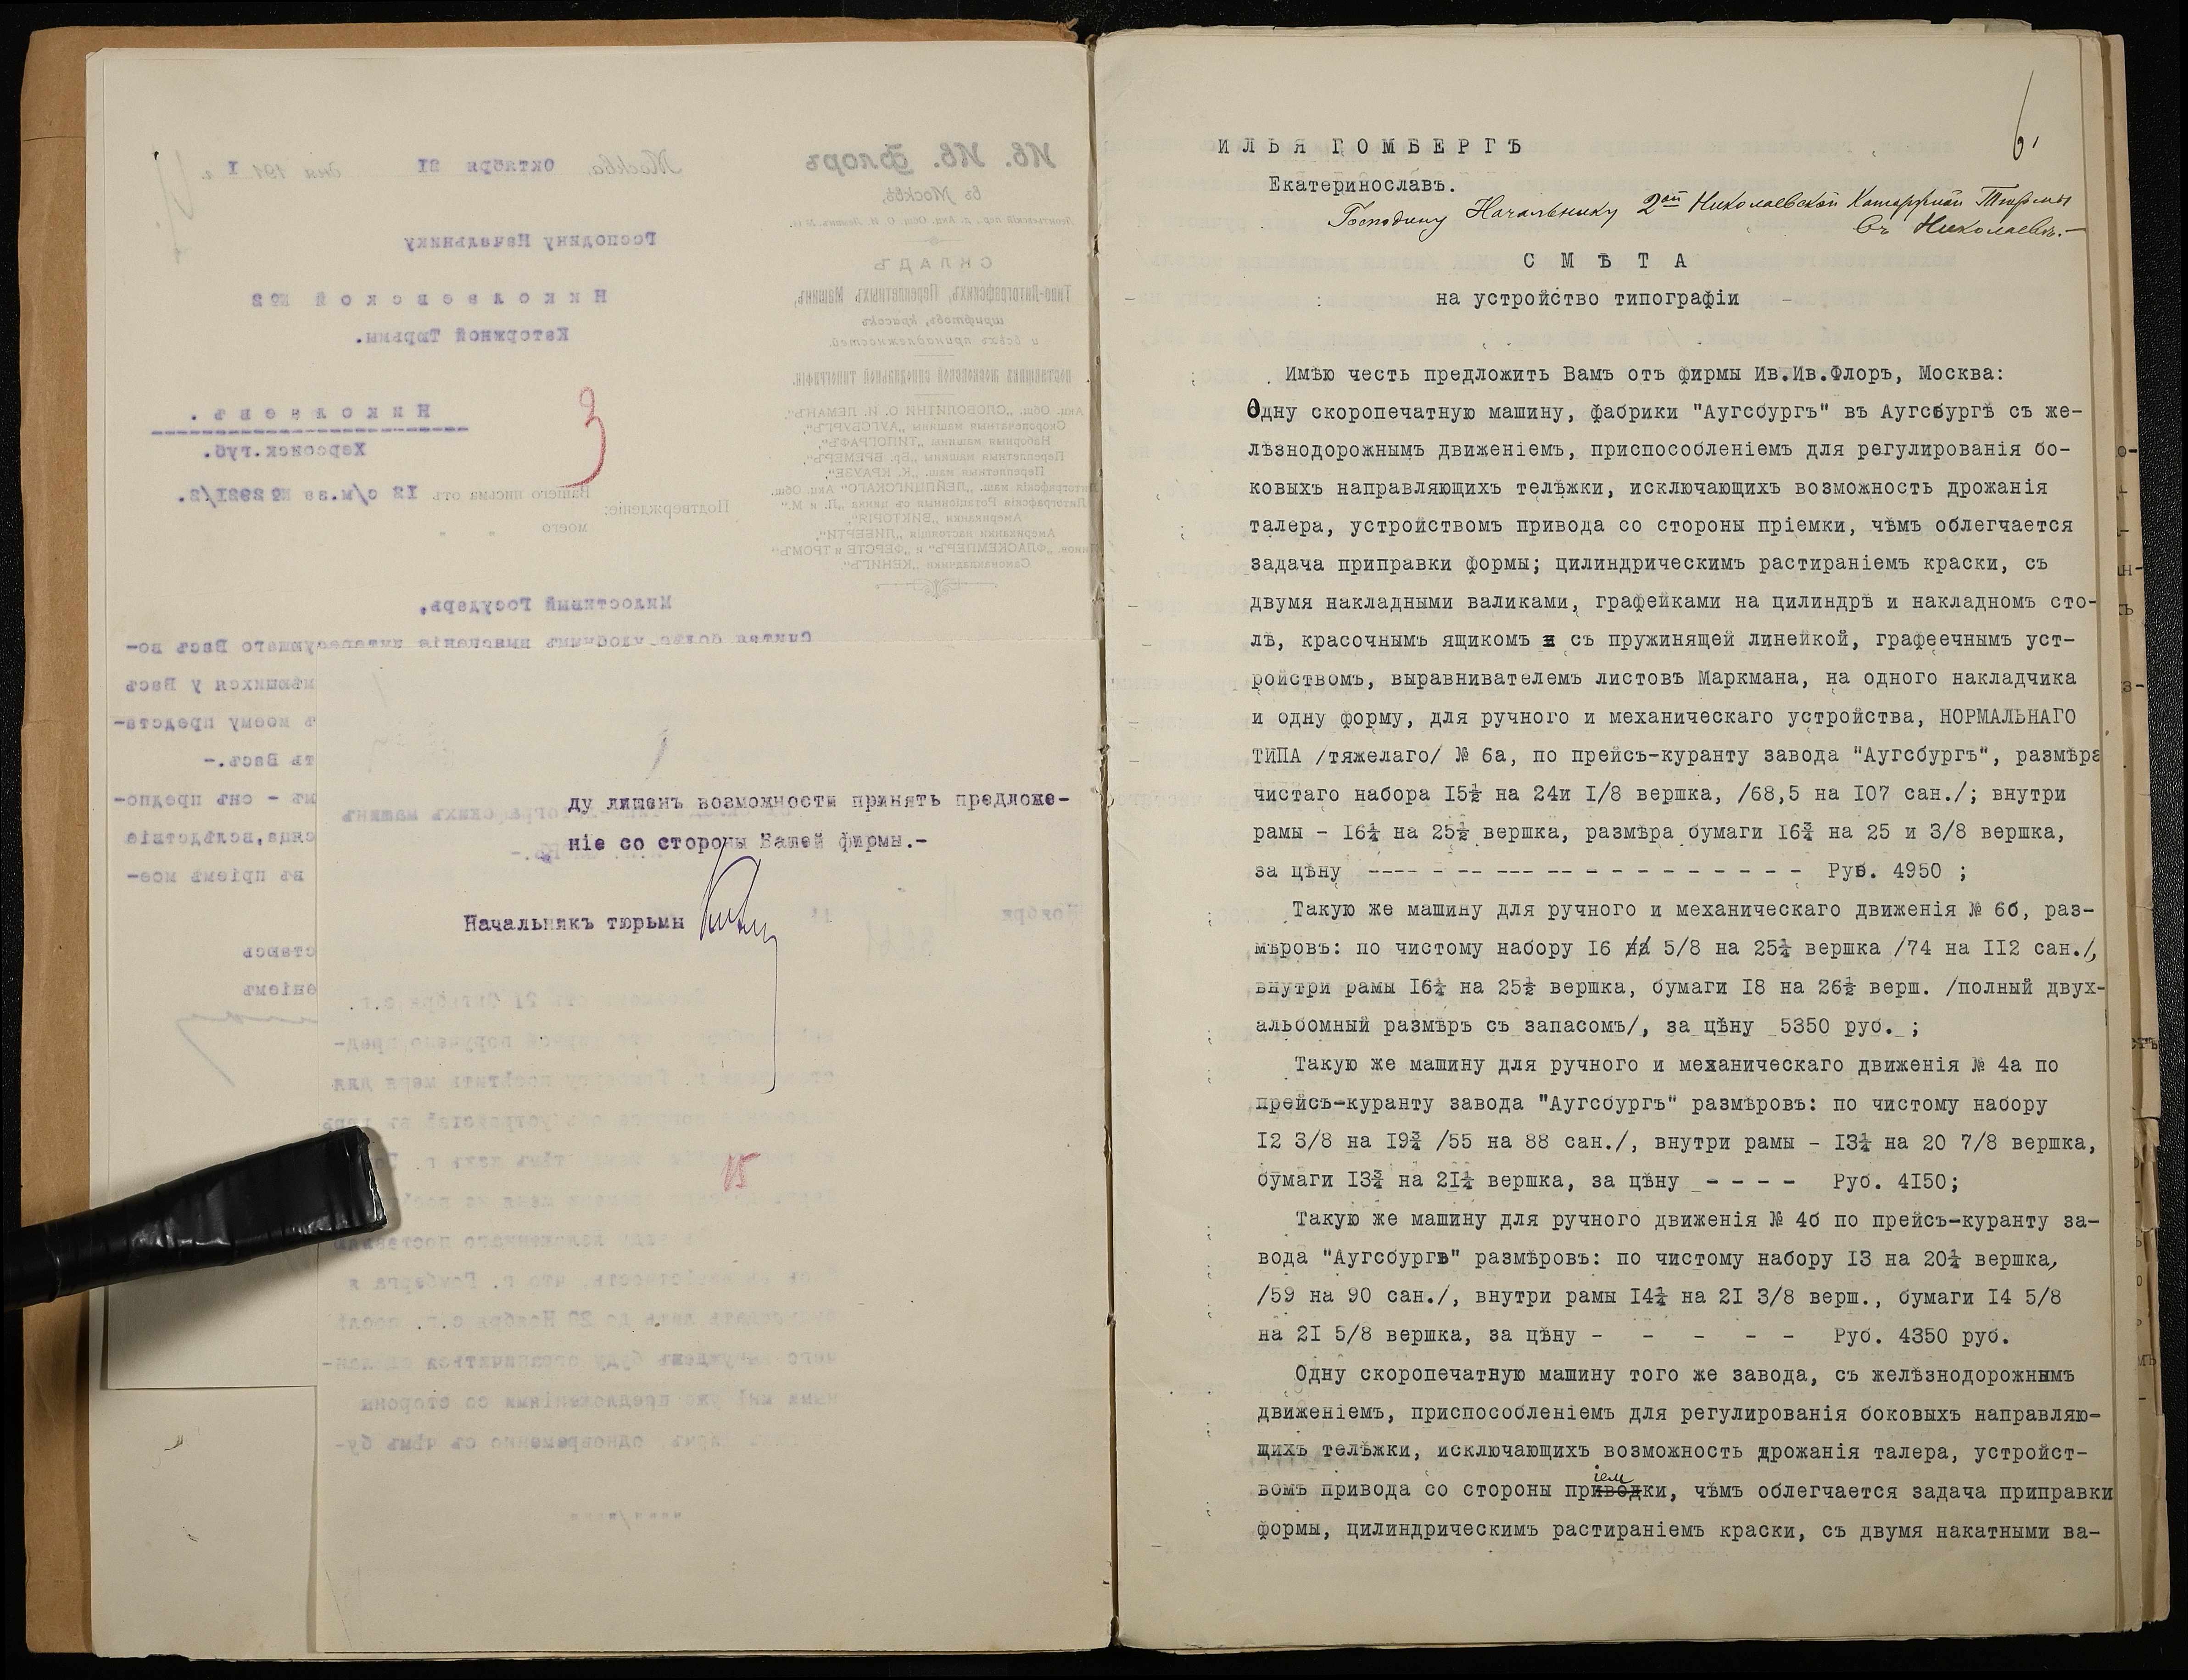 ду лишенъ возможности принять предложе-
ніе со стороны Вашей фирмы.-
Начальникъ тюрьмы
3
15
6.
ИЛЬЯ ГОМБЕРГЪ
Екатеринославъ.
Господину Начальнику 2ой Николаевской Каторжной Тюрьмы
Въ Николаевѣ.-
СМѢТА
на устройство типографіи
Имѣю честь предложить Вамъ отъ фирмы Ив.Ив.Флоръ, Москва:
Одну скоропечатную машину, фабрики "Аугсбургъ" въ Аугсбургѣ съ же-
лѣзнодорожнымъ движеніемъ, приспособленіемъ для регулированія бо-
ковыхъ направляющихъ телѣжки, исключающихъ возможность дрожанія
талера, устройствомъ привода со стороны пріемки, чѣмъ облегчается
задача приправки формы; цилиндрическимъ растираніемъ краски, съ
двумя накладными валиками, графейками на цилиндрѣ и накладномъ сто-
лѣ, красочнымъ ящикомъ съ пружинящей линейкой, графеечнымъ уст-
ройствомъ, выравнивателемъ листовъ Маркмана, на одного накладчика
и одну форму, для ручного и механическаго устройства, НОРМАЛЬНАГО
ТИПА /тяжелаго/ № 6а, по прейсъ-куранту завода "Аугсбургъ", размѣра
чистаго набора I5½ на 24и I/8 вершка, /68,5 на I07 сан./; внутри
рамы - I6¼ на 25½ вершка, размѣра бумаги I6¾ на 25 и 3/8 вершка,
за цѣну ---- - -- --- -- - - - - - - - - - - Руб. 4950 ;
Такую же машину для ручного и механическаго движенія № 6б, раз-
мѣровъ: по чистому набору I6 на 5/8 на 25¼ вершка /74 на II2 сан./,
внутри рамы I6¼ на 25½ вершка, бумаги I8 на 26½ верш. /полный двух-
альбомный размѣръ съ запасомъ/, за цѣну 5350 руб. ;
Такую же машину для ручного и механическаго движенія № 4а по
прейсъ-куранту завода "Аугсбургъ" размѣровъ: по чистому набору
I2 3/8 на I9¾ /55 на 88 сан./, внутри рамы - I3¼ на 20 7/8 вершка,
бумаги I3¾ на 2I¼ вершка, за цѣну - - - - Руб. 4I50;
Такую же машину для ручного движенія № 4б по прейсъ-куранту за-
вода "Аугсбургъ" размѣровъ: по чистому набору I3 на 20¼ вершка,
/59 на 90 сан./, внутри рамы I4¼ на 2I 3/8 верш., бумаги I4 5/8
на 2I 5/8 вершка, за цѣну - - - - - Руб. 4350 руб.
Одну скоропечатную машину того же завода, съ желѣзнодорожнымъ
движеніемъ, приспособленіемъ для регулированія боковыхъ направляю-
щихъ телѣжки, исключающихъ возможность дрожанія талера, устройст-
іем
вомъ привода со стороны приводки, чѣмъ облегчается задача приправки
формы, цилиндрическимъ растираніемъ краски, съ двумя накатными ва-